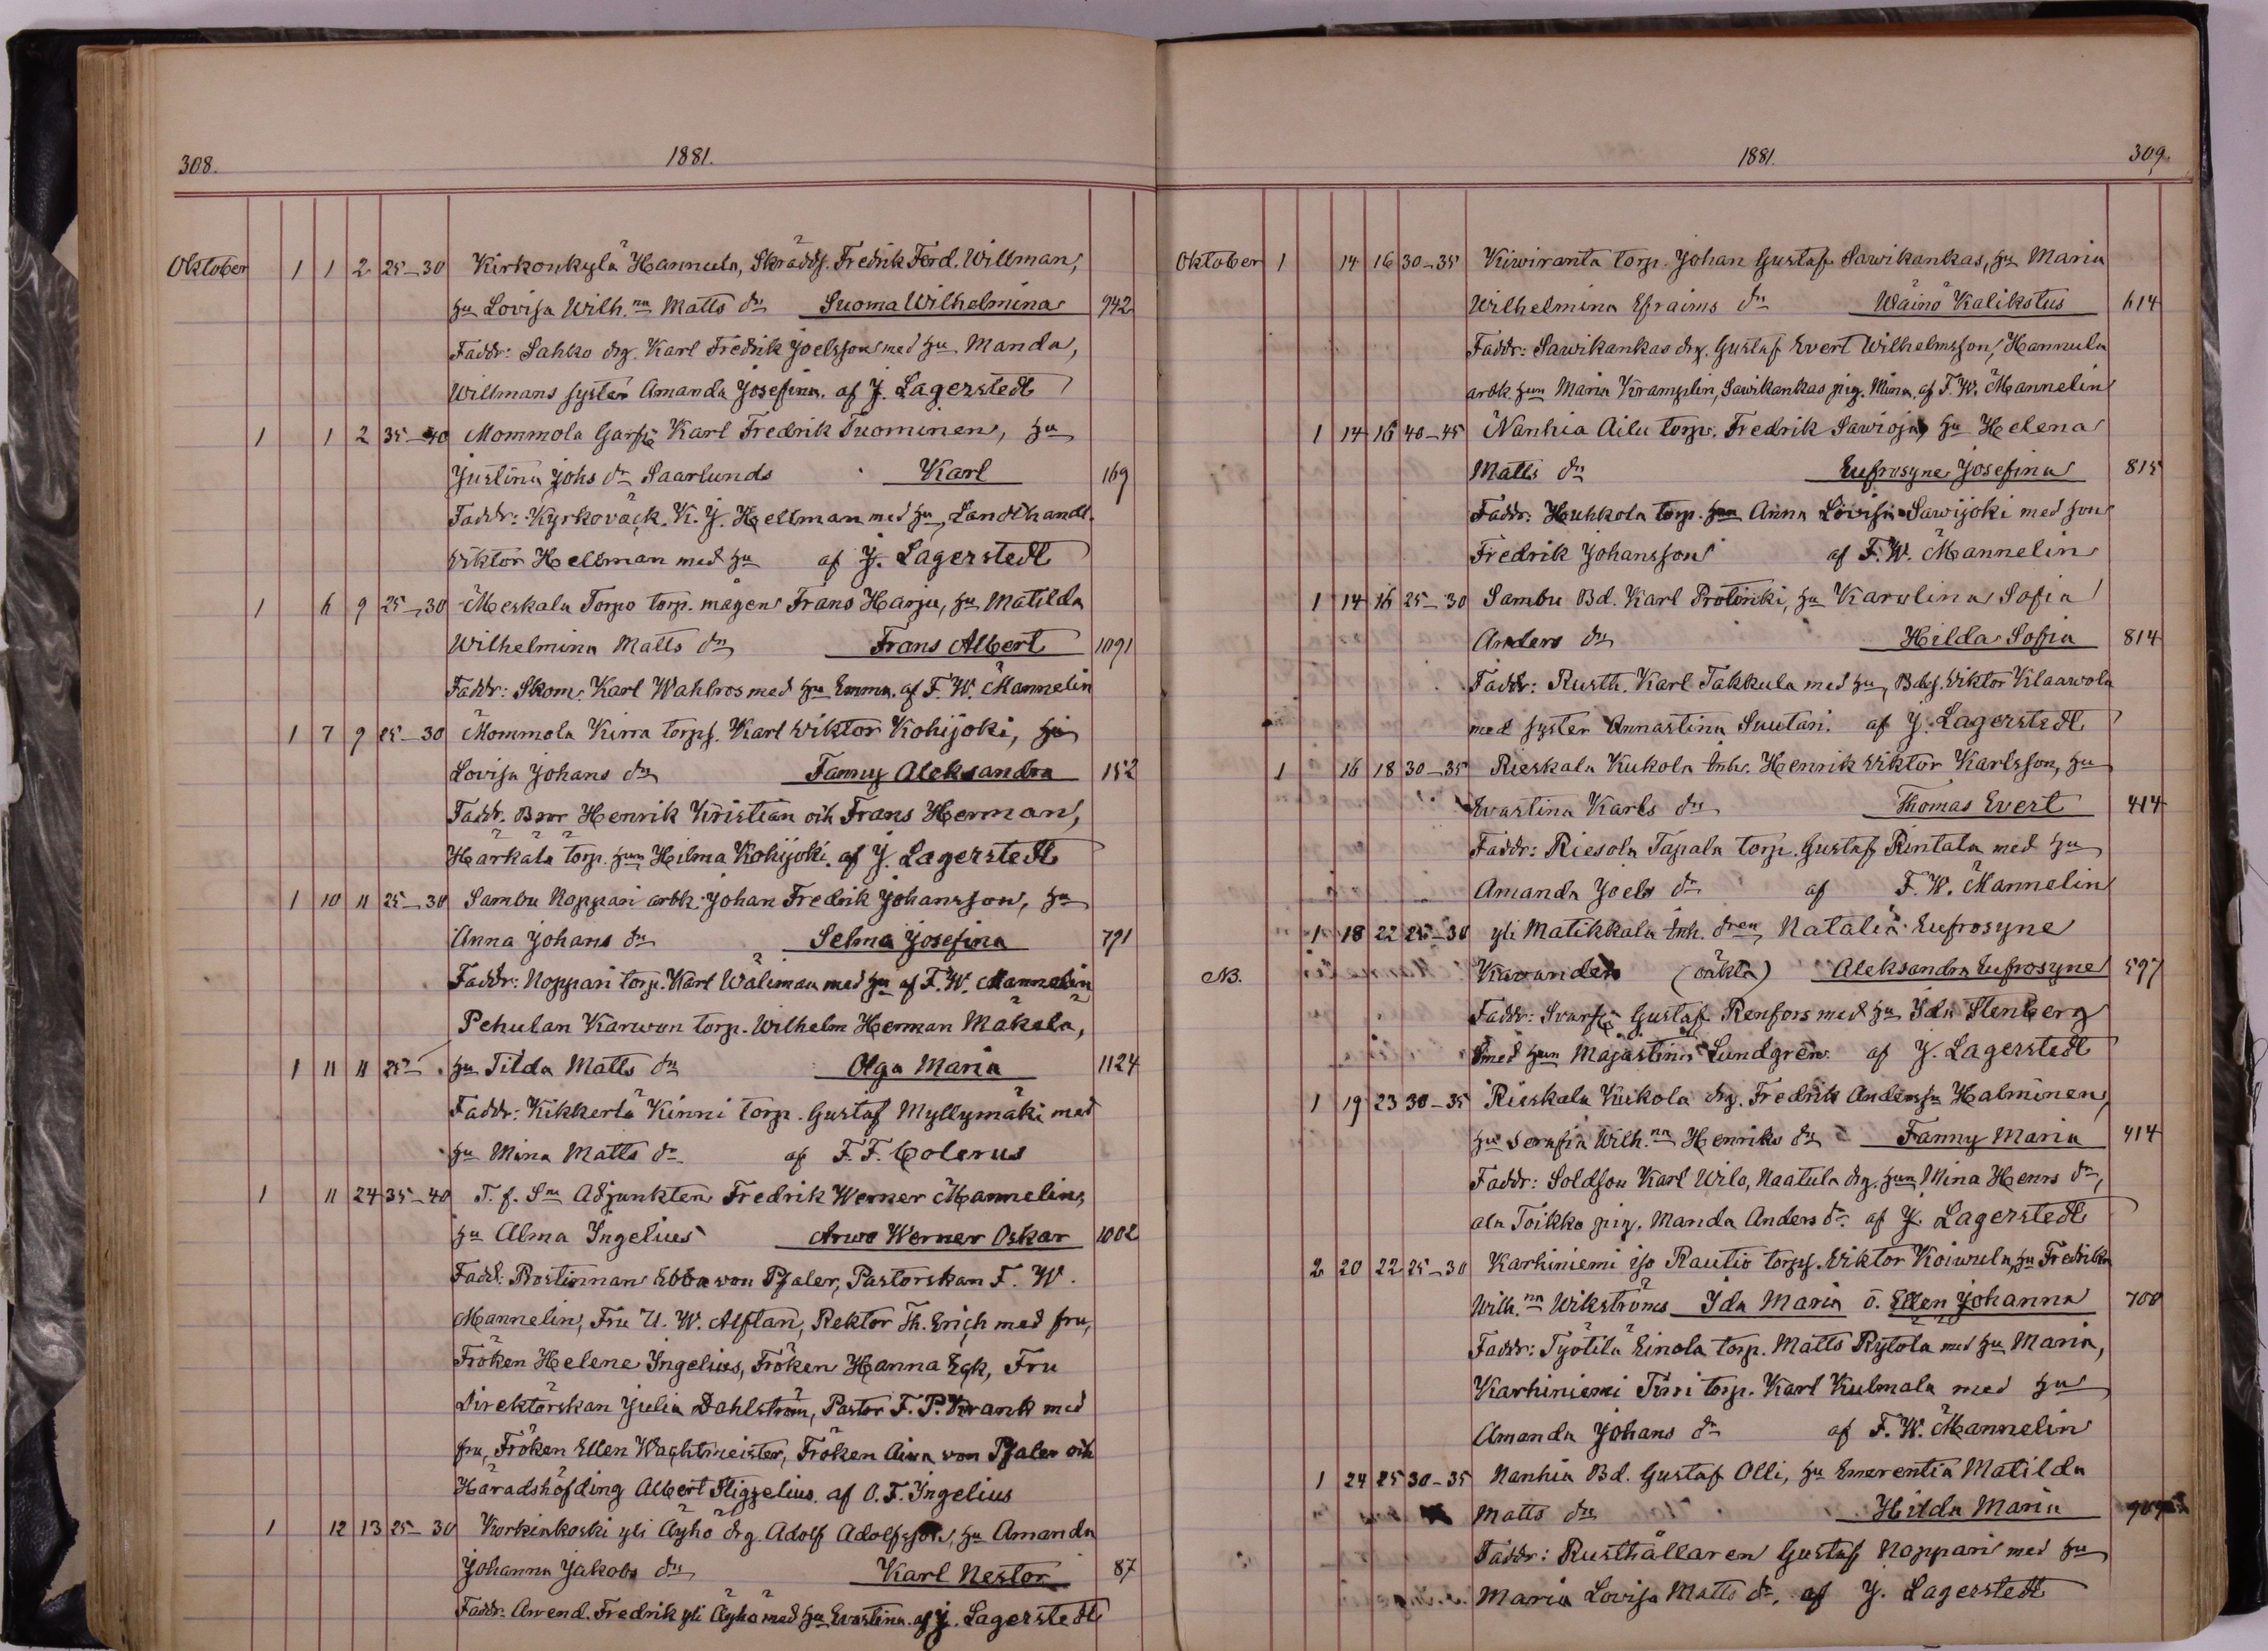 308. 1881.
Oktober 1 1 2 25-30 Kirkonkylä Hannula, Skrädds. Fredrik Ferd. Willman,
hu Lovisa Wilh.na Matts dr Suoma Wilhelmina 942
Faddr: Sahko drg. Karl Fredrik Joelsson med hu Manda,
Willmans syster Amanda Josefina. af J. Lagerstedt
1 1 2 35-40 Mommola Garfv. Karl Fredrik Tuominen, hu
Justina Johs dr Saarlunds Karl 169
Faddr: Kyrkoväck. K. J. Hellman med hu, Landthandl.
Viktor Hellman med hu af J. Lagerstedt
1 6 9 25-30 Meskala Torpo torp. mågen Frans Harju, hu Matilda
Wilhelmina Matts dr Frans Albert 1091
Faddr: Skom. Karl Wahlros med hu Emma. af F. W. Mannelin
1 7 9 25-30 Mommola Kirra torps. Karl Viktor Kohijoki, hu
Lovisa Johans dr Fanny Aleksandra 152
Faddr. Bror Henrik Kristian och Frans Herman,
Härkälä torp. hun Hilma Kohijoki. af J. Lagerstedt
1 10 11 25-30 Sambu Noppari arbk. Johan Fredrik Johansson, hu
Anna Johans dr Selma Josefina 791
Faddr: Noppari torp. Karl Wäliman med hu af F. W. Mannelin
Pehulan Karwon torp. Wilhelm Herman Mäkelä,
1 11 11 25- hu Tilda Matts dr Olga Maria 1124
Faddr: Kikkertä Kinni torp. Gustaf Myllymäki med
hu Mina Matts dr af F. F. Colerus
1 11 24 35-40 T. f. Sne Adjunkten Fredrik Werner Mannelin,
hu Alma Ingelius Arwo Werner Oskar 1002
Fadd: Prostinnan Ebba von Pfaler, Pastorskan F. W.
Mannelin, Fru U. W. Alftan, Rektor Th. Erich med fru,
Fröken Helene Ingelius, Fröken Hanna Eck, Fru
Direktörskan Julia Dahlström, Pastor F. P. Krank med
fru, Fröken Ellen Wachtmeister, Fröken Aina von Pfaler och
Häradshöfding Albert Stigzelius. af O. F. Ingelius
1 12 13 25-30 Korkiakoski yli Äyhö drg. Adolf Adolfsson, hu Amanda
Johanna Jakobs dr Karl Nestor 87
Faddr: Awend. Fredrik yli Äyhö med hu Evastina. af J. Lagerstedt
1881. 309.
Oktober 1 14 16 30-35 Kiwiranta torp. Johan Gustaf Sawikankas, hu Maria
Wilhelmina Efraims dr Wäinö Kalikstus 614
Faddr: Sawikankas drg. Gustaf Evert Wilhelmsson, Hannula
arbk. hun Maria Kramplin, Sawikankas pig. Mina. af F. W. Mannelin
1 14 16 40-45 Nanhia Ailu torp. Fredrik Sawioja, hu Helena
Matts dr Eufrosyne Josefina 815
Faddr: Huhkola torp. hun Anna Lovisa Sawijoki med son
Fredrik Johansson af F. W. Mannelin
1 14 16 25-30 Sambu Bd. Karl Prolinki, hu Karolina Sofia
Anders dr Hilda Sofia 814
Faddr: Rusth. Karl Takkula med hu, Bds. Viktor Klaawola
med syster Annastina Suutari. af J. Lagerstedt
1 16 18 30-35 Rieskala Kukola Inh. Henrik Viktor Karlsson, hu
Evastina Karls dr Thomas Evert 414
Faddr: Riesola Tapala torp. Gustaf Rintala med hu
Amanda Joels dr af F. W. Mannelin
1 18 22 25-30 yli Matikkala Inh. dren Natalia Eufrosyne
NB. Kavander (oäkta) Aleksandra Eufrosyne 597
Faddr: Svarfv. Gustaf Renfors med hu Ida Stenberg
Smed hun Majastina Lundgren af J. Lagerstedt
1 19 23 30-35 Rieskala Kukola drg. Fredrik Andersson Halminen,
hu Serafia Wilh.na Henriks dr Fanny Maria 414
Faddr: Soldson Karl Wilo, Naatula drg. hun Mina Henrs dr,
ala Toikko pig. Manda Anders dr af J. Lagerstedt
2 20 22 25-30 Karhiniemi iso Rautio torps. Viktor Koiwula, hu Fredrika
Wilh.na Wikströms Ida Maria o. Ellen Johanna 700
Faddr: Työtilä Einola torp. Matts Rytölä med hu Maria,
Karhiniemi Tirri torp. Karl Kulmala med hu
Amanda Johans dr af F. W. Mannelin
1 24 25 30-35 Nanhia Bd. Gustaf Olli, hu Emerentia Matilda
Matts dr Hilda Maria
Faddr: Rusthållaren Gustaf Noppari med hu
Maria Lovisa Matts dr, af J. Lagerstedt